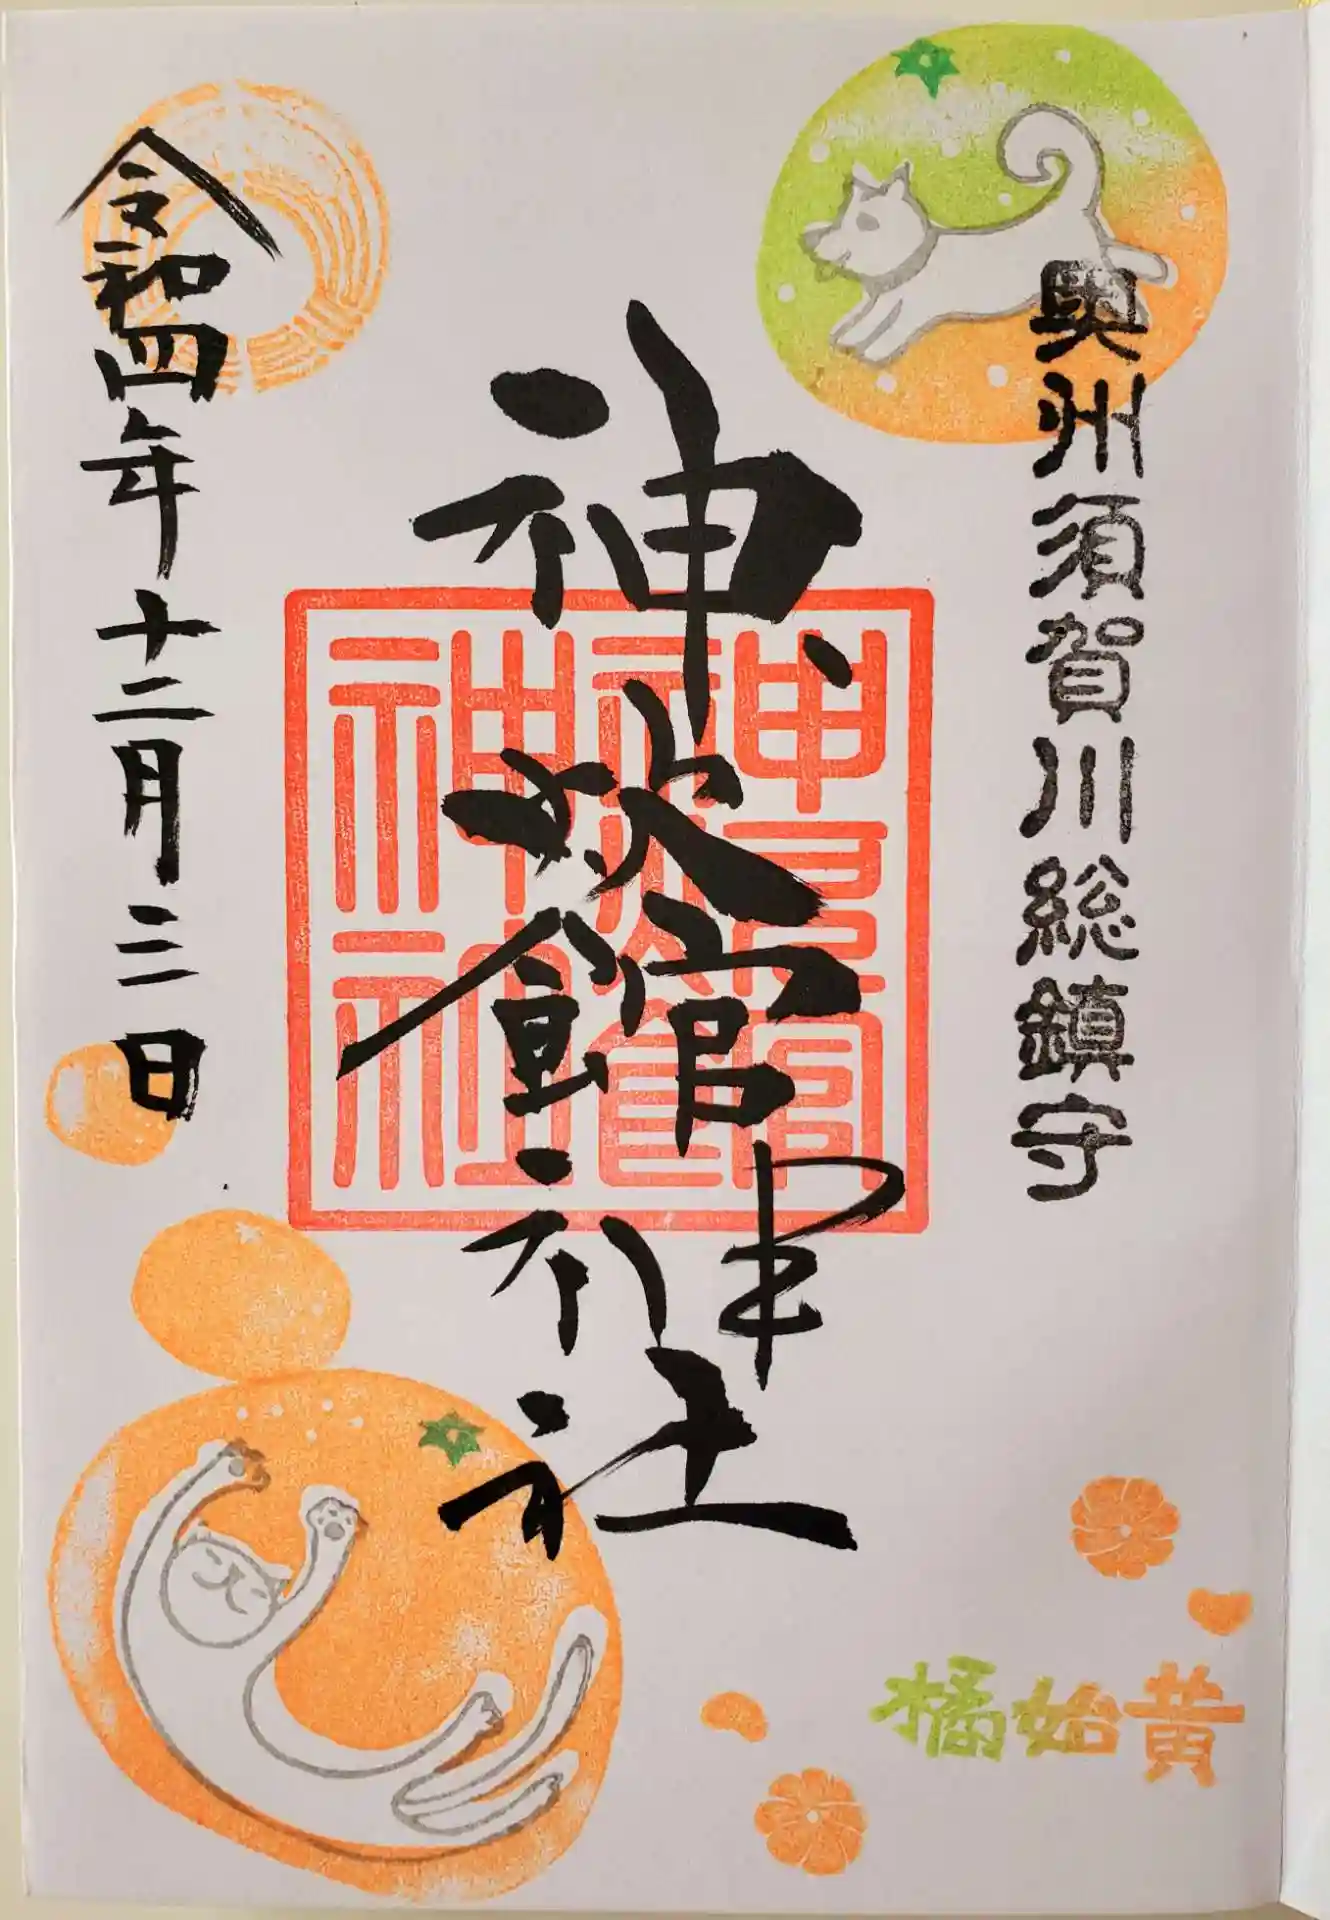 奥州須賀川総鎮守
神炊館神社
神炊館
神社
令和四年十二月三日
橘始黄